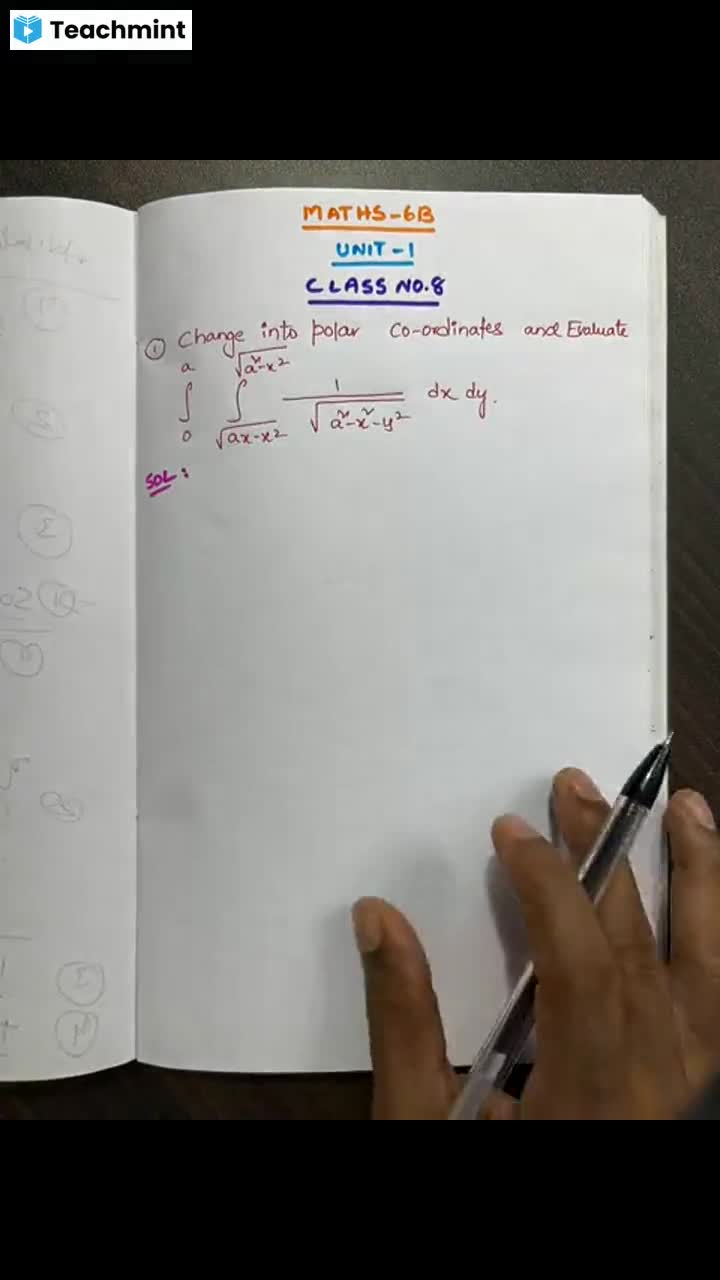 Teachmint
MATHS-6B
UNIT-1
CLASS NO.8
① Change into polar Co-ordinates and Evaluate
∫₀ᵃ ∫_{√(ax-x²)}^{√(a²-x²)} 1/√(a²-x²-y²) dx dy.
SOL: